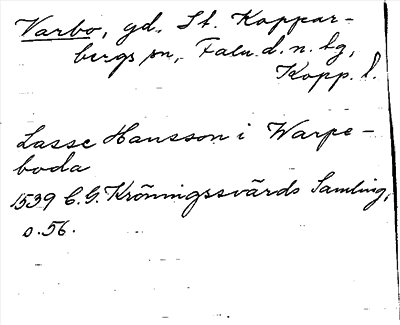 Varbo, gd, St. Koppar-
bergs sn, Falu d. n. tg,
Kopp. l.
Lasse Hansson i Warpe-
boda
1539 C.G. Kröningssvärds Samling,
s. 56.